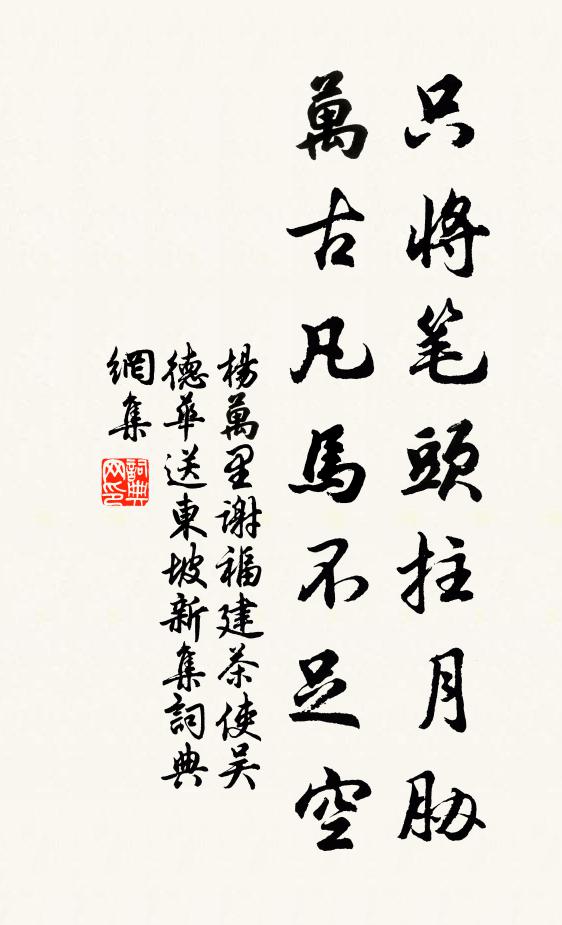 只將笔頭拄月胁
萬古凡馬不足空
楊萬里谢福建茶使吴
德華送東坡新集詞典
網集
詞典
网印